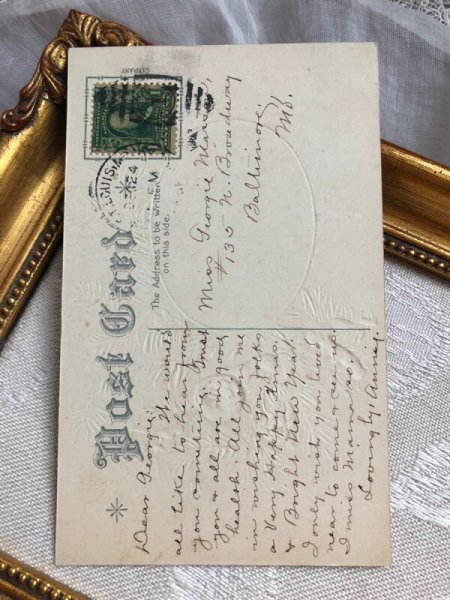 Post Card
GERMANY
The Address to be written
on this side.
LOUIS
Dear Georgie:
The world
all like to hear from
you sometime.
you & all are in good
health. All join me
in wishing you folks
a Very Happy Xmas.
& Bright New Year.
I only wish you lived
near to come & see us.
I miss Mama so.
Lovingly, Anna.
Miss Georgie
#135 N. Broadway
Baltimore,
Md.